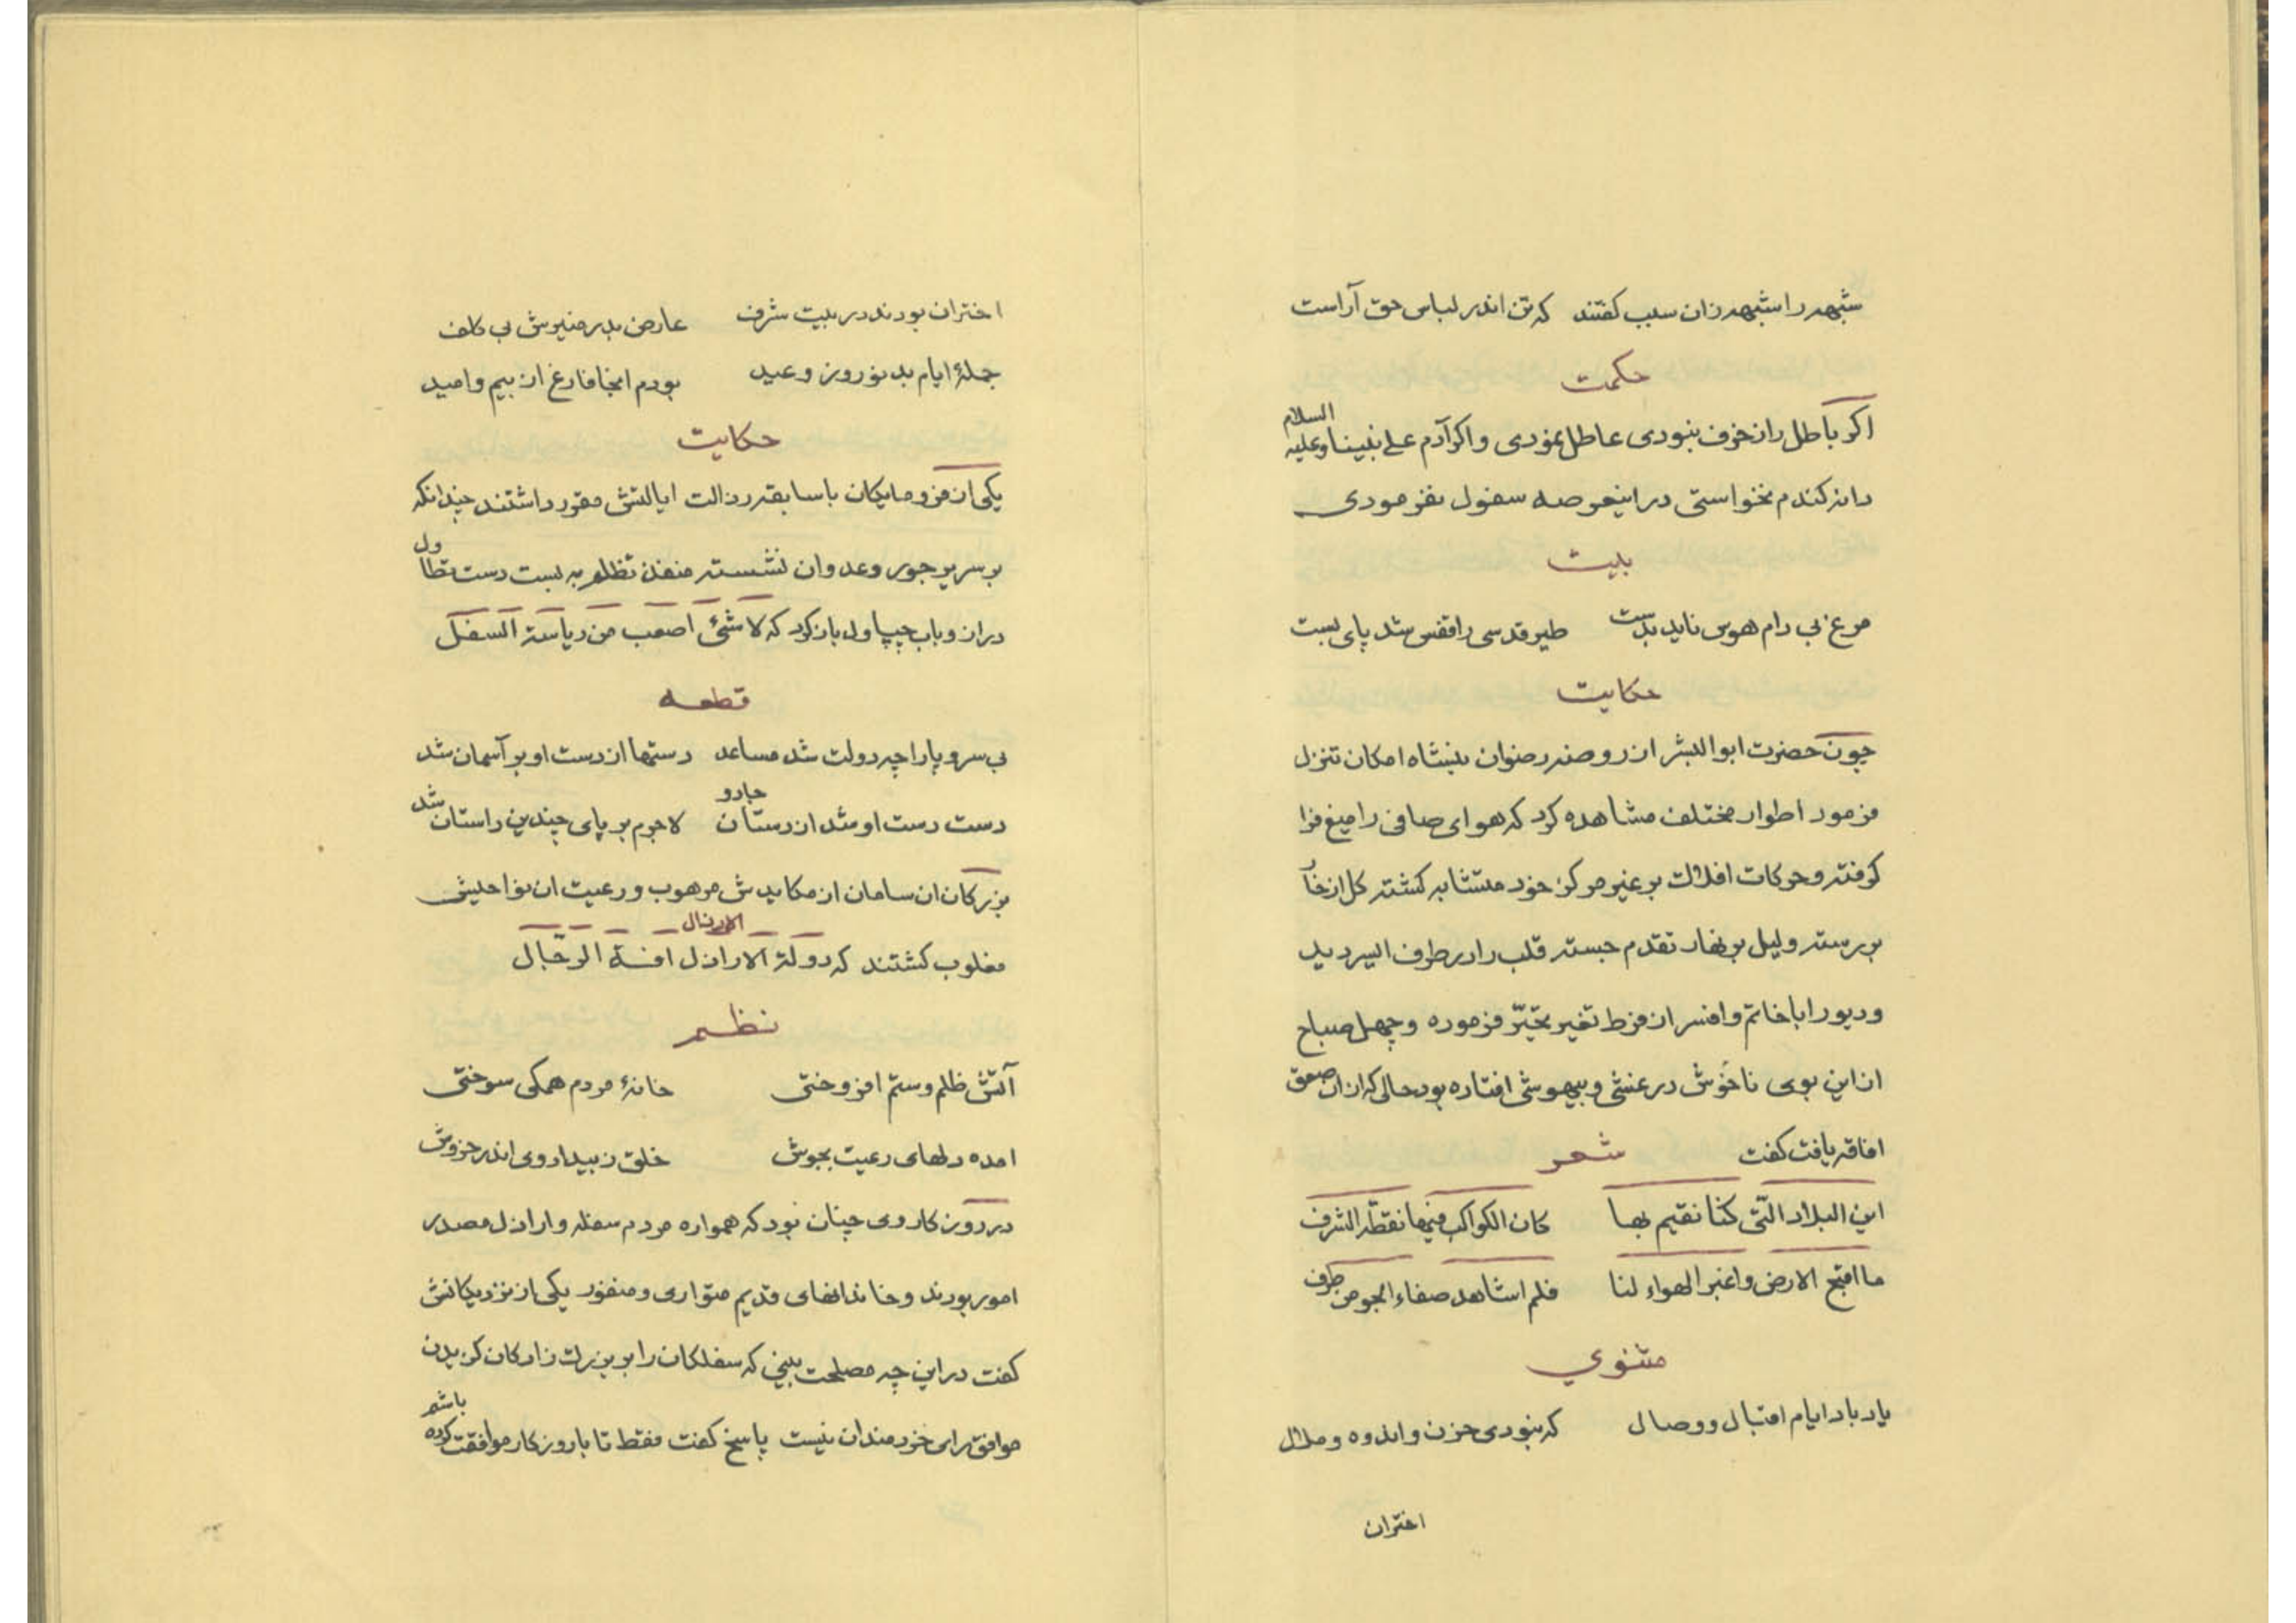 شبهه را شبهه زان سبب کفتند که تن اندر لباس حق آراست
حکمت
اکر باطل را زخرف نبودی عاطل نمودی و اکر آدم علی نبینا وعلیه السلام
دانه کندم نخواستی در اینعرصه سفول نفرمودی
بیت
مرغ بی دام هوس ناید بدست طیر قدسی را قفس شد پای بست
حکایت
چون حضرت ابو البشر از روضه رضوان بنشاه امکان تنزل
فرمود اطوار مختلف مشاهده کرد که هوای صافی را میغ فرا
کرفته و حرکات افلاک بر غیر مرکز خود متشابه کشته کل از خار
بررسته و لیل بر نهار تقدم جسته قلب را در طرف الیسر دید
و دیو را با خاتم و افسر از فرط تغیر تحیّر فرموده و چهل صباح
از این بوی ناخوش در غشی و بیهوشی افتاده بود حالی که از ان صعق
افاقه یافت کفت شعر
این البلاد الّتی کنّا نقیم بها کان الکواکب فیها نقطة الشرف
ما اقبح الارض واغبر الهواء لنا فلم اشاهد صفاء الجو من طرف
مثنوي
یاد باد ایام اقبال و وصال که نبودی حزن و اندوه و ملال
اختران
اختران بودند در بیت شرف عارض بدر منیرش بی کلف
جملۀ ایام بد نوروز و عید بودم انجا فارغ از بیم و امید
حکایت
یکی از فرومایکان با سابقه رذالت ایالتش مقرر داشتند چندانکه
بر سریر جور و عدوان نشسته منفذ تظلم به بست دست تطاول
دراز و باب چپاول باز کرد که لا شئ اصعب من ریاسة السفل
قطعه
بی سر و پا را چه دولت شد مساعد دستها از دست او بر آسمان شد
دست دست او شد از دستان جادو لا جرم بر پای چندین داستان شد
بزرکان ان سامان از مکایدش مرهوب و رعیت ان نواحیش
مغلوب کشتند که دولة الاراذل الارذال افة الرّجال
نظم
آتش ظلم و ستم افروختی خانۀ مردم همکی سوختی
امده دلهای رعیت بجوش خلق ز بیداد وی اندر خروش
در دوز کار وی چنان بود که همواره مردم سفله و اراذل مصدر
امور بودند و خاندانهای قدیم متواری و منفور یکی از نزدیکانش
کفت در این چه مصلحت بینی که سفلکان را بر بزرک زادکان کزیدن
موافق رای خردمندان نیست پاسخ کفت فقط تا با روزکار موافقت کرده باشم